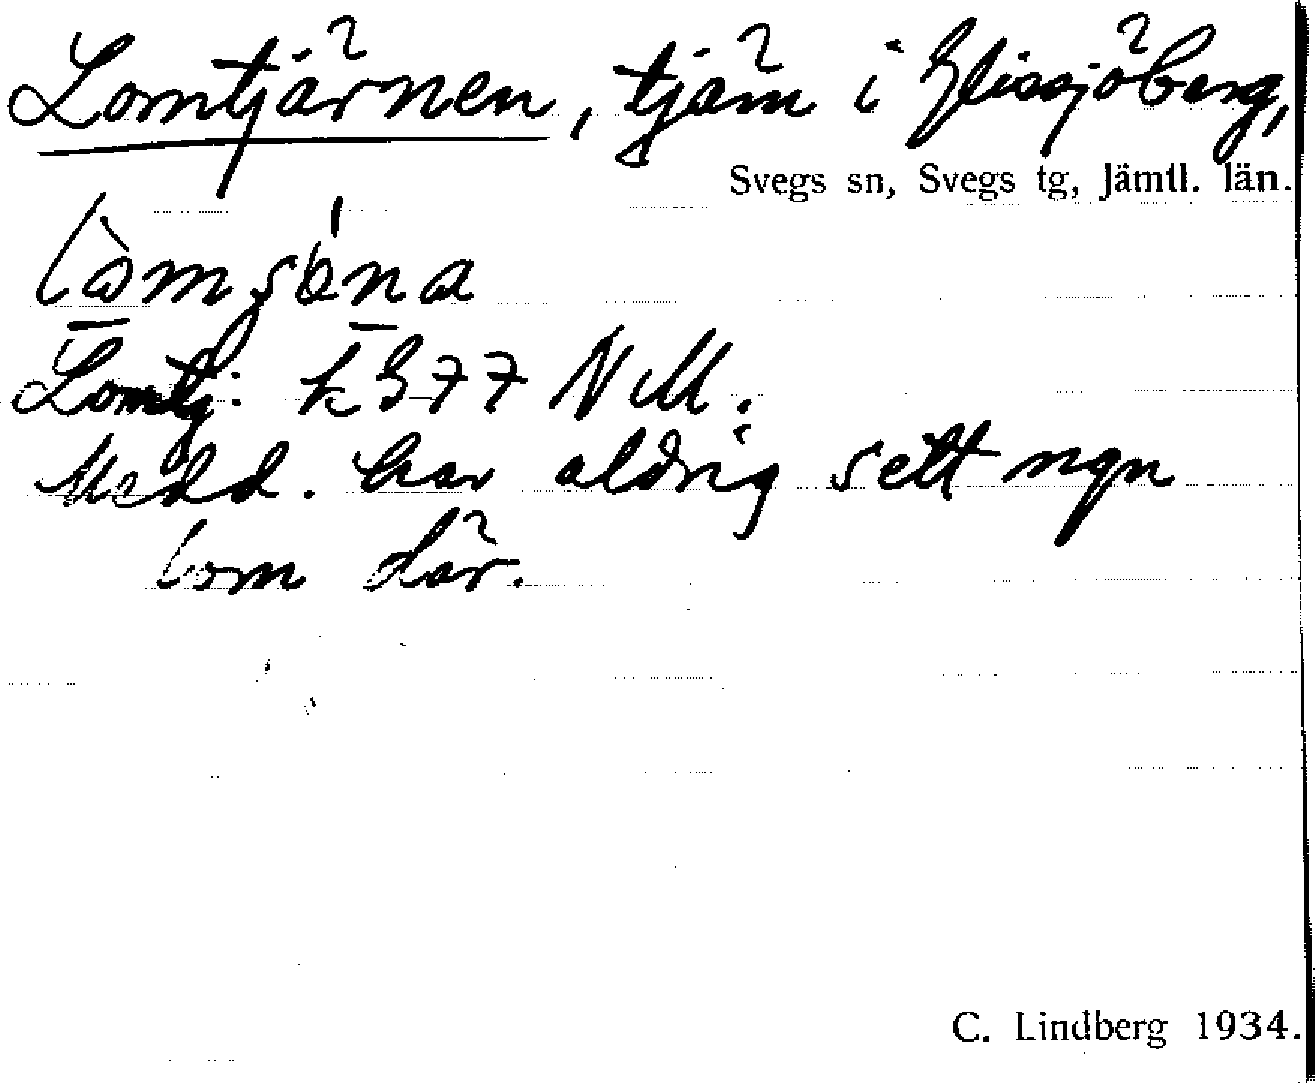 Lomtjärnen, tjärn i Glissjöberg,
Svegs sn, Svegs tg, Jämtl. län.
Lomtj: k377 NM.
Medd. har aldrig sett ngn
lom där.
C. Lindberg 1934.